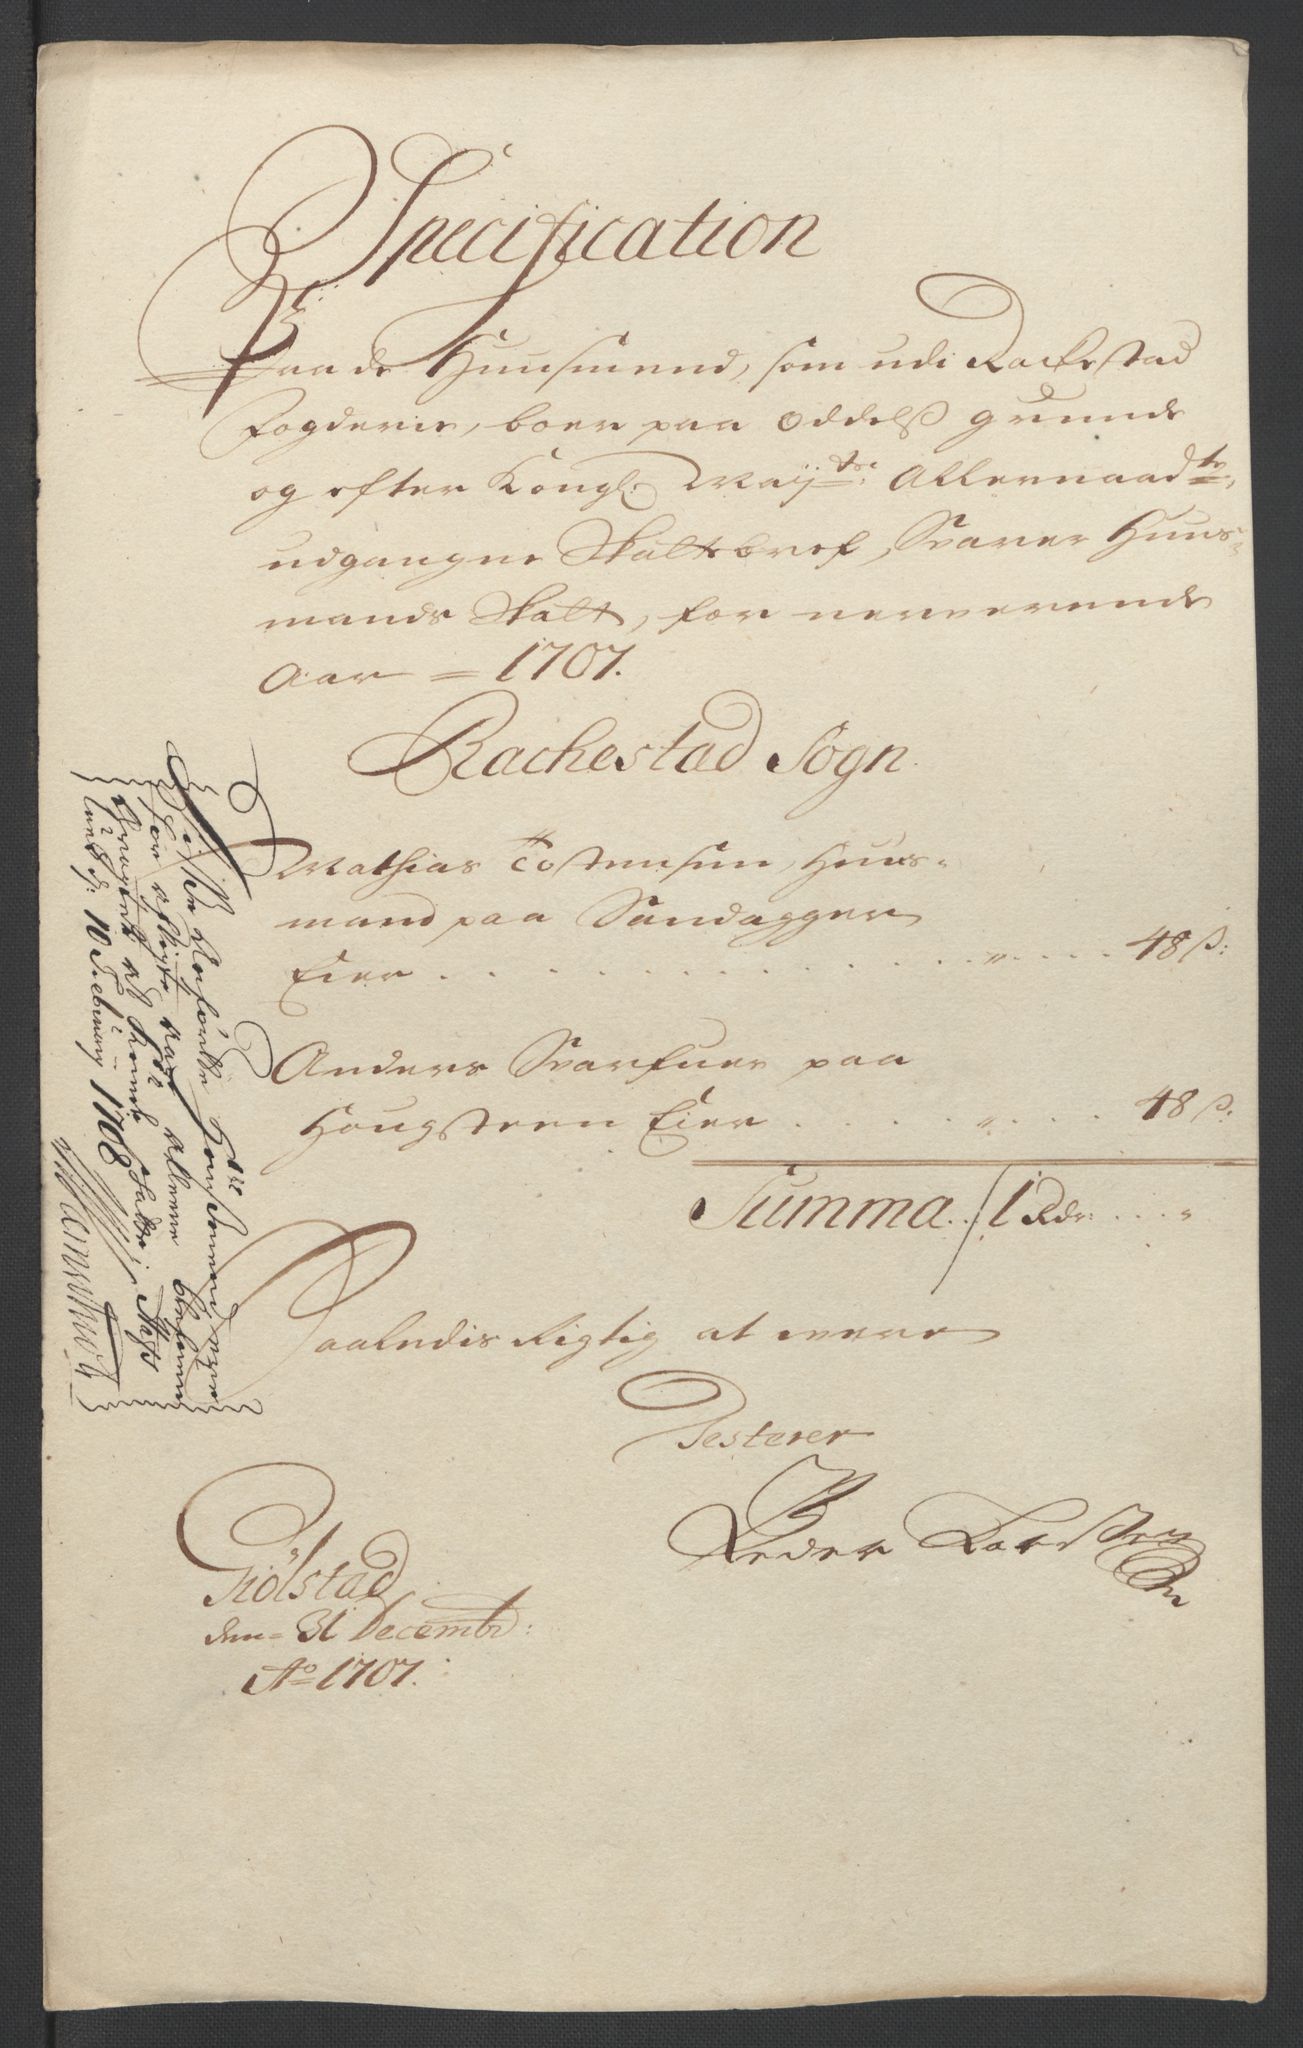 Specification
Paa de Huusmend, som udi Rackestad
fogderie, boer paa Oddelß grunde
og efter Kongl: Maÿts: Allernaadte,
udgangne Skattebref, Svarer Huus-
mands Skatt, for nerverende
Aar = 1707.
Rachestad Sogn.
Mathias Tostensen, Huus-
mand paa Sandagger
Eier . . . . . . . . . . . . . . . . . " . . . . 48 ß:
Anders Svarfuer paa
Hougsteen Eier . . . . . . " . . . . 48 ß:
Summa .. / 1 Rdr: . . . "
Saaledis Rigtig at were
Testerer
Peder Larssen
Giölstad
den= 31 Decembr:
Ao= 1707.
10 Februarÿ 1708